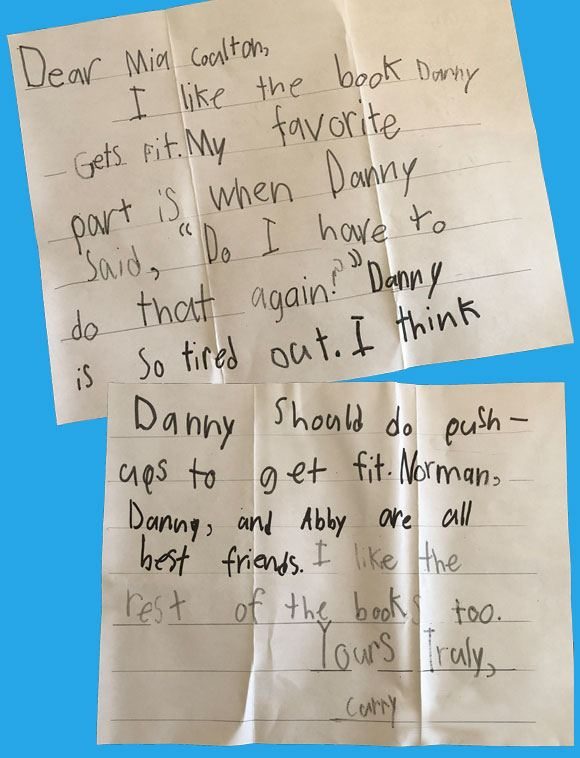 Dear Mia Coalton,
I like the book Danny
Gets Fit. My favorite
part is when Danny
Said, "Do I have to
do that again?" Danny
is so tired out. I think
Danny Should do push-
ups to get fit. Norman,
Danny, and Abby are all
best friends. I like the
rest of the books too.
Yours Truly,
Curry